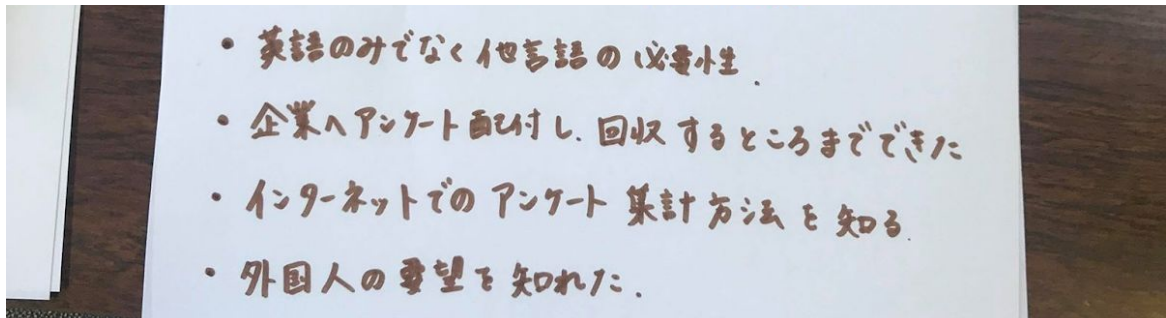 ・英語のみでなく他言語の必要性.
・企業へアンケート配付し、回収するところまでできた
・インターネットでのアンケート集計方法を知る.
・外国人の要望を知れた.